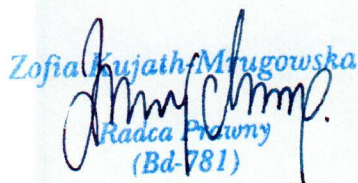 Zofia Kujath-Mrugowska
Radca Prawny
(Bd-781)